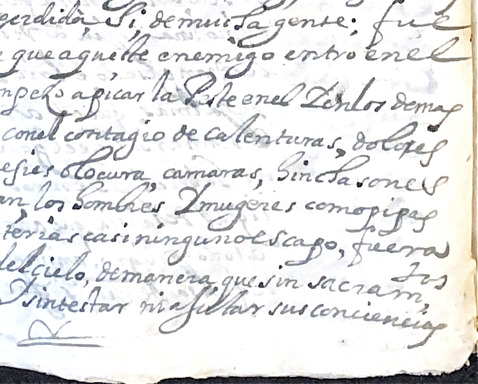 perdida, Si, de mucha gente; fue
que aqueste enemigo entro en el
enpezo a picar la Peste en el Y en los demas
con el contagio de calenturas, dolores
locura, camaras, hinchasones
an, los hombres Y mugeres como pipas
terias casi ninguno escapo, fuera
del cielo, de manera, que sin sacram,
tos
Y sin testar ni ajustar sus conciencias